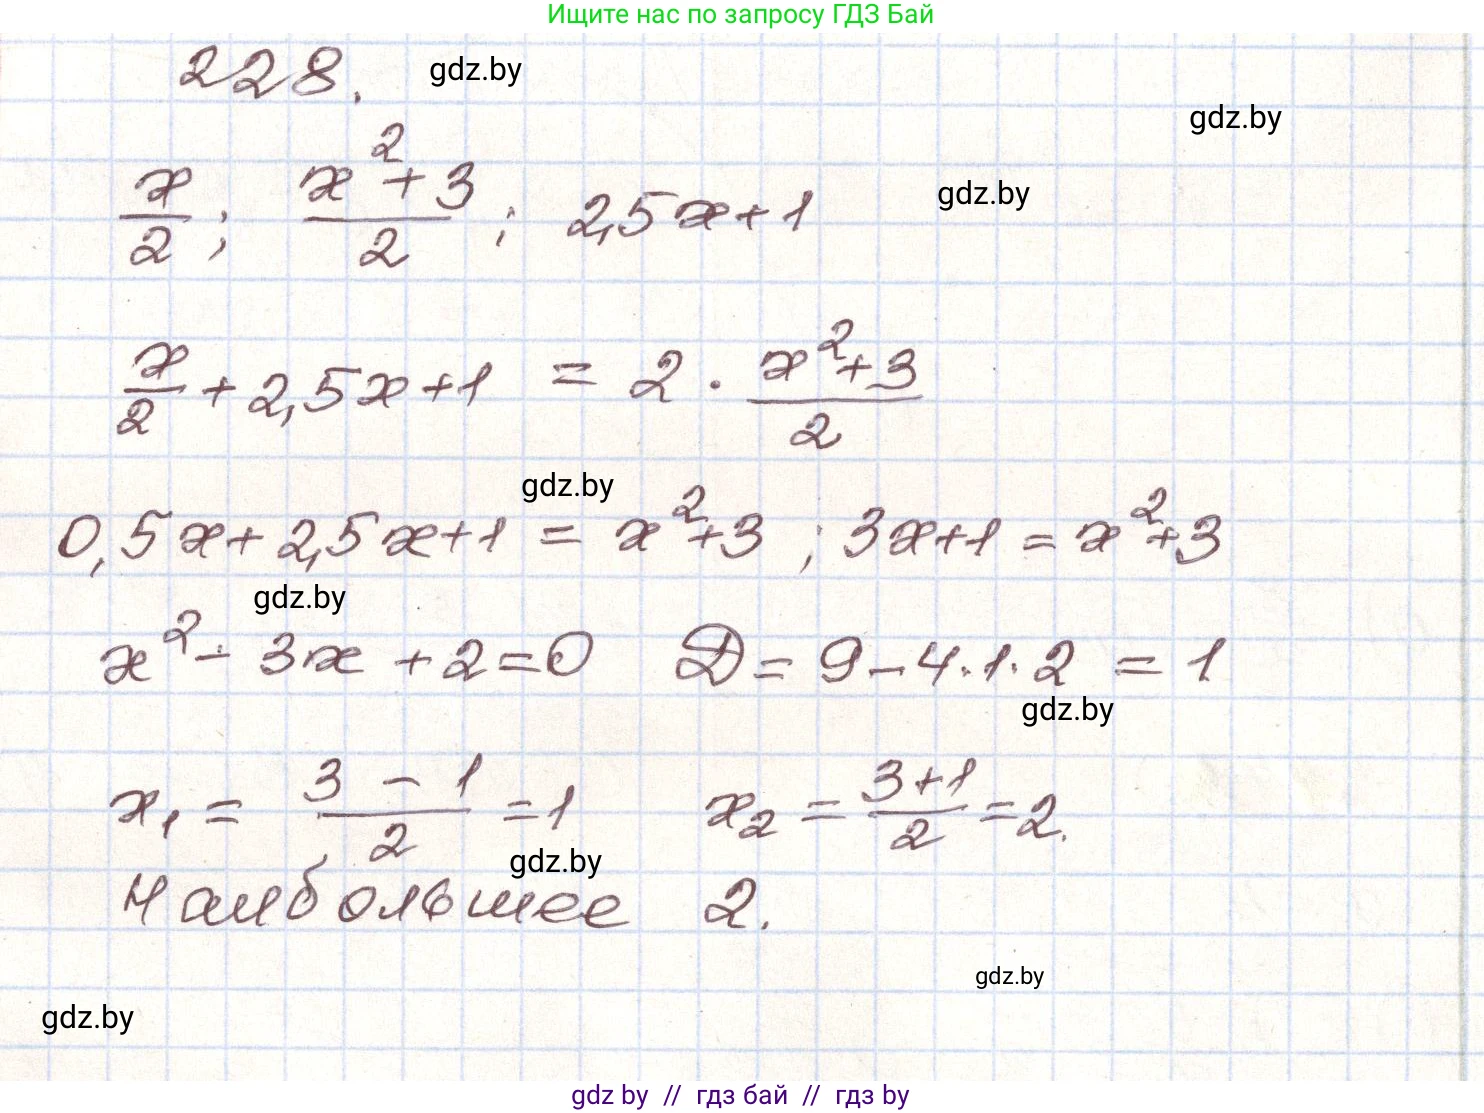 Ищите нас по запросу ГДЗ Бай
228. gdz.by
gdz.by
x/2; (x²+3)/2; 2,5x+1 gdz.by
x/2 + 2,5x+1 = 2 · (x²+3)/2
gdz.by
0,5x+2,5x+1 = x²+3 ; 3x+1 = x²+3
gdz.by
x² - 3x + 2 = 0 D = 9 - 4·1·2 = 1
gdz.by
x₁ = (3 - 1)/2 = 1 x₂ = (3+1)/2 = 2.
gdz.by
Наибольшее 2.
gdz.by
gdz.by
gdz by // гдз бай // гдз by